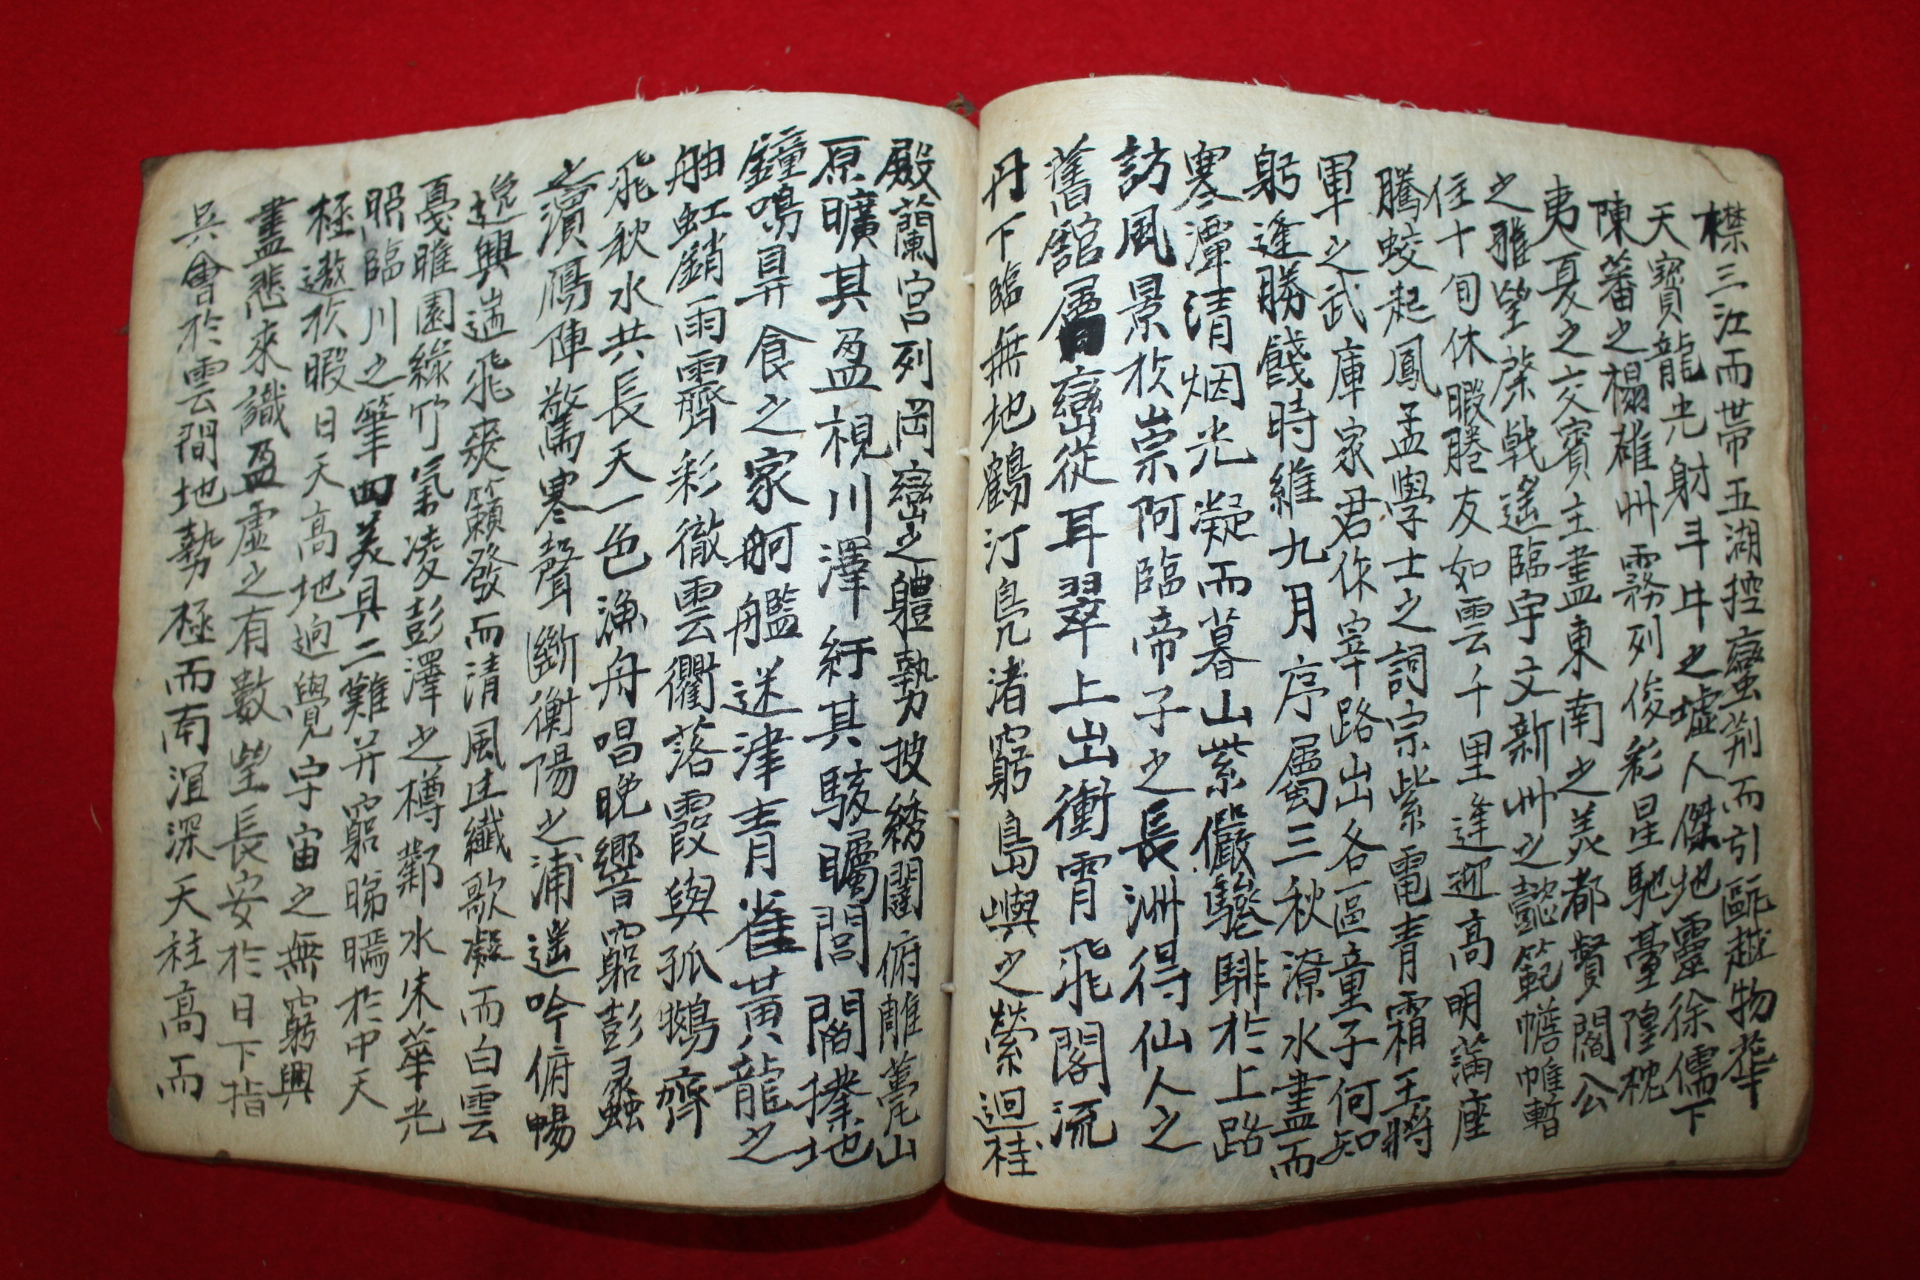 襟三江而帶五湖控蠻荊而引甌越物華
天寶龍光射斗牛之墟人傑地靈徐儒下
陳蕃之榻雄州霧列俊彩星馳臺隍枕
夷夏之交賓主盡東南之美都賢閻公
之雅望棨戟遙臨宇文新州之懿範幨帷暫
住十旬休暇勝友如雲千里逢迎高明滿座
騰蛟起鳳孟學士之詞宗紫電青霜王將
軍之武庫家君作宰路出名區童子何知
躬逢勝餞時維九月序屬三秋潦水盡而
寒潭清烟光凝而暮山紫儼驂騑於上路
訪風景於崇阿臨帝子之長洲得仙人之
舊舘層巒從耳翠上出衝霄飛閣流
丹下臨無地鶴汀鳧渚窮島嶼之縈迴桂
殿蘭宮列岡巒之體勢披綉闥俯雕甍山
原曠其盈視川澤紆其駭矚閭閻撲地
鐘鳴鼎食之家舸艦迷津青雀黃龍之
舳虹銷雨霽彩徹雲衢落霞與孤鶩齊
飛秋水共長天一色漁舟唱晚響窮彭蠡
之濱鴈陣驚寒聲斷衡陽之浦遙吟俯暢
逸興遄飛爽籟發而清風生纖歌凝而白雲
遏睢園綠竹氣凌彭澤之樽鄴水朱華光
照臨川之筆四美具二難并窮睇曣於中天
極遨於暇日天高地逈覺宇宙之無窮興
盡悲來識盈虛之有數望長安於日下指
吳會於雲間地勢極而南溟深天柱高而